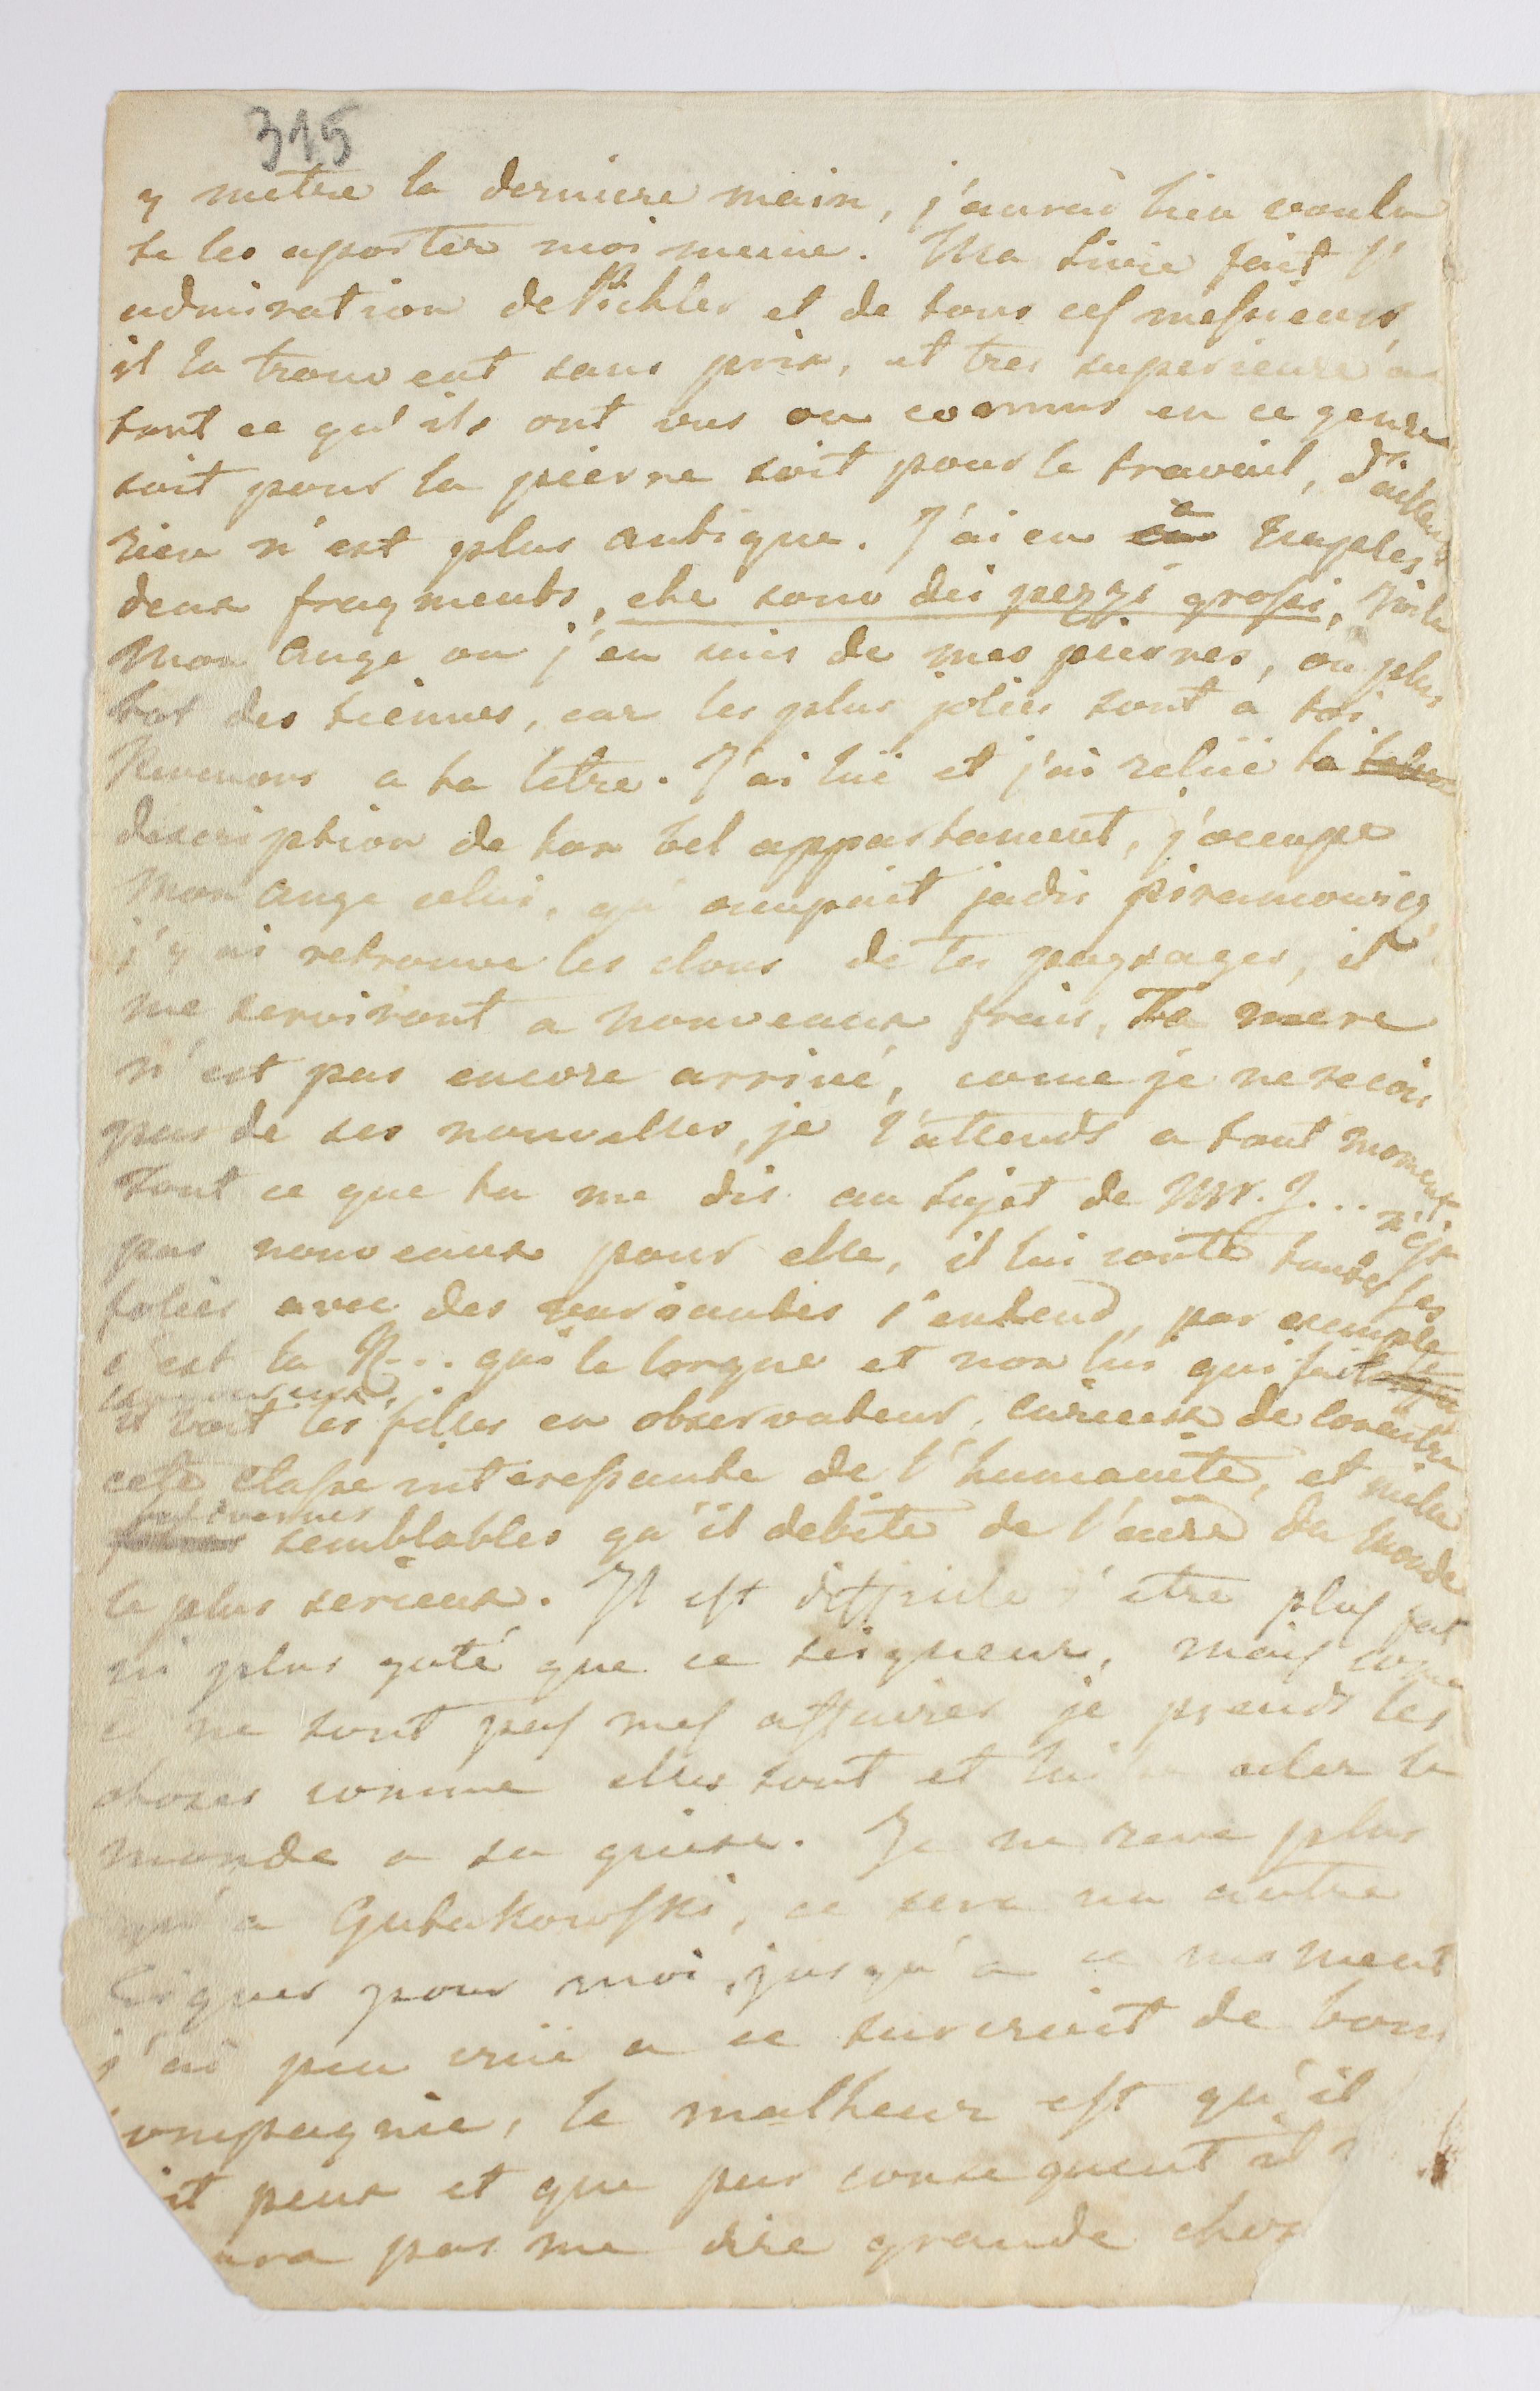 315
y metre la derniere main, j'aurai bien voulu
te les aporter moi meme. Ma Livie fait l'
admiration de Pichler et de tous ces messieurs,
il la trouvent sans prix, et tres superieure a
tout ce qu'ils ont vus ou connus en ce genre
soit pour la pierre soit pour le travail, d'ailleurs
rien n'est plus antique. J'ai eu a Naples
deux fragments, che sono dei pezzi grossi, Voila
Mon Ange ou j'en suis de mes pierres, ou plus
tot des tiennes, car les plus jolies sont a toi.
Revenons a ta letre. J'ai luë et j'ai reluë ta
description de ton bel appartament, j'occupe
Mon Ange celui, qu'occupait jadis piramowicz,
j'y ai retrouve les clous de tes paysages, il
me serviront a nouveaux frais, Ta mere
n'est pas encore arrivé, come je ne recois
pas de ses nouvelles, je l'attends a tout moment.
Tout ce que tu me dis au sujet de Mr. J... n'est
pas nouveaux pour elle, il lui conte toutes ses
folies avec des variantes s'entend, par exemple
c'est la R... qui le lorgne et non lui qui fait le
il voit les filles en observateur, curieux de conaitre
cete classe interessante de l'humanité, et mille
semblables qu'il debite de l'aire du monde
le plus serieux. Il est difficile d'etre plus fat
ni plus gaté que ce seigneur, mais come
ce ne sont pas mes affaires je prends les
choses comme elles sont et aler le
monde a sa guise. Je ne reve plus
qu'a Gutakowski, ce sera un autre
pour moi, jusqu'a ce moment
j'ai peu cruë a ce surcroit de bone
compagnie, le malheur est qu'il
peux et que par consequent il
pas me dire grande chose